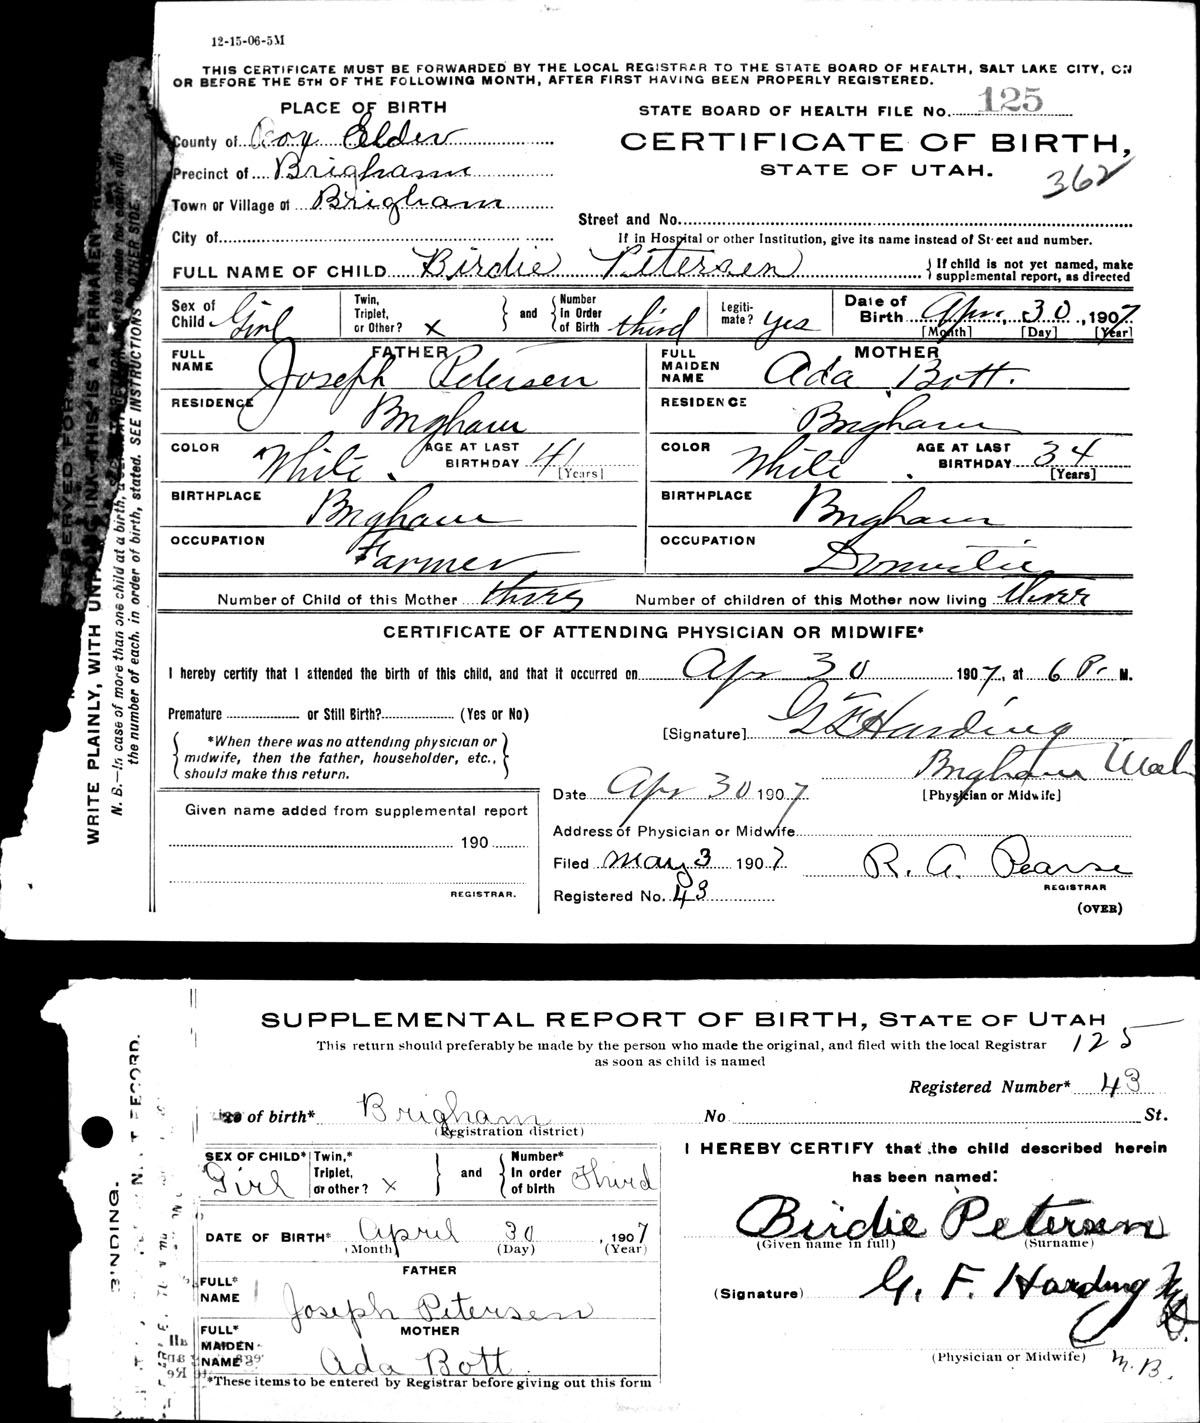 12-15-06-5M
THIS CERTIFICATE MUST BE FORWARDED BY THE LOCAL REGISTRAR TO THE STATE BOARD OF HEALTH, SALT LAKE CITY, ON
OR BEFORE THE 5TH OF THE FOLLOWING MONTH, AFTER FIRST HAVING BEEN PROPERLY REGISTERED.
PLACE OF BIRTH
STATE BOARD OF HEALTH FILE No. 125
County of Box Elder
CERTIFICATE OF BIRTH,
Precinct of Brigham
STATE OF UTAH.
362
Town or Village of Brigham
Street and No.
City of
If in Hospital or other Institution, give its name instead of Street and number.
FULL NAME OF CHILD Birdie Petersen
If child is not yet named, make supplemental report, as directed
Sex of Child Girl
Twin, Triplet, or Other? x
and
Number In Order of Birth third
Legitimate? yes
Date of Birth Apr. 30, 1907
[Month] [Day] [Year]
FATHER
FULL NAME Joseph Petersen
MOTHER
FULL MAIDEN NAME Ada Bott.
RESIDENCE Brigham
RESIDENCE Brigham
COLOR White. AGE AT LAST BIRTHDAY 41 [Years]
COLOR White. AGE AT LAST BIRTHDAY 34 [Years]
BIRTHPLACE Brigham
BIRTHPLACE Brigham
OCCUPATION Farmer
OCCUPATION Domestic
Number of Child of this Mother three
Number of children of this Mother now living three
CERTIFICATE OF ATTENDING PHYSICIAN OR MIDWIFE*
I hereby certify that I attended the birth of this child, and that it occurred on Apr 30 1907, at 6 P. M.
Premature or Still Birth? (Yes or No)
[Signature] G F Harding
*When there was no attending physician or
midwife, then the father, householder, etc.,
should make this return.
Brigham Utah
Date Apr 30 1907
[Physician or Midwife]
Given name added from supplemental report
190
REGISTRAR.
Address of Physician or Midwife
Filed May 3 1907 R. A. Pearse
REGISTRAR
Registered No. 43
(OVER)
WRITE PLAINLY, WITH UNFADING INK—THIS IS A PERMANENT
N. B.—In case of more than one child at a birth,
the number of each, in order of birth, stated. SEE INSTRUCTIONS OTHER SIDE.
SUPPLEMENTAL REPORT OF BIRTH, STATE OF UTAH
This return should preferably be made by the person who made the original, and filed with the local Registrar
as soon as child is named
125
Registered Number* 43
of birth* Brigham No St.
(Registration district)
SEX OF CHILD* Girl
Twin,* Triplet, or other? x
and
Number* In order of birth Third
I HEREBY CERTIFY that the child described herein
has been named:
Birdie Petersen
(Given name in full) (Surname)
DATE OF BIRTH* April 30, 1907
(Month) (Day) (Year)
FATHER
FULL* NAME Joseph Petersen
(Signature) G. F. Harding
MOTHER
FULL* MAIDEN NAME Ada Bott
(Physician or Midwife)
*These items to be entered by Registrar before giving out this form